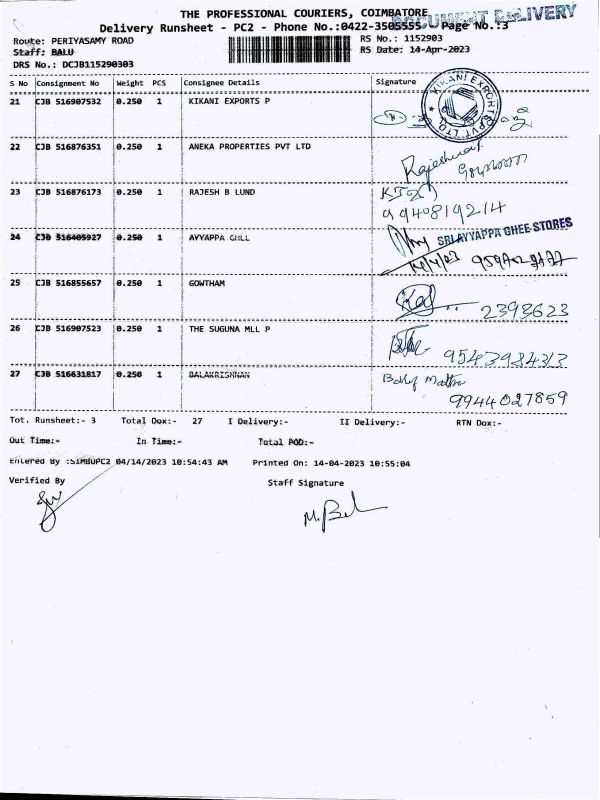 THE PROFESSIONAL COURIERS, COIMBATORE
DOCUMENT DELIVERY
Delivery Runsheet - PC2 - Phone No.:0422-3505555 Page No.:3
Route: PERIYASAMY ROAD RS No.: 1152903
Staff: BALU RS Date: 14-Apr-2023
DRS No.: DCJB115290303
S No Consignment No Weight PCS Consignee Details Signature
21 CJB 516907532 0.250 1 KIKANI EXPORTS P
KIKANI EXPORTS PVT LTD
22 CJB 516876351 0.250 1 ANEKA PROPERTIES PVT LTD
23 CJB 516876173 0.250 1 RAJESH B LUND
9940819214
24 CJB 516405927 0.250 1 AYYAPPA GHLL
SRI AYYAPPA GHEE STORES
14/4/23
25 CJB 516855657 0.250 1 GOWTHAM
2393623
26 CJB 516907523 0.250 1 THE SUGUNA MLL P
27 CJB 516631817 0.250 1 BALAKRISHNAN
9944027859
Tot. Runsheet:- 3 Total Dox:- 27 I Delivery:- II Delivery:- RTN Dox:-
Out Time:- In Time:- Total POD:-
Entered By :SIMBUPC2 04/14/2023 10:54:43 AM Printed On: 14-04-2023 10:55:04
Verified By Staff Signature